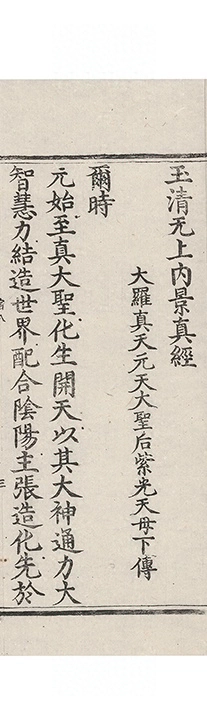 玉清无上內景真經
大羅真天元天大聖后紫光天母下傳
爾時
元始至真大聖化生開天以其大神通力大
智慧力結造世界配合陰陽主張造化先於